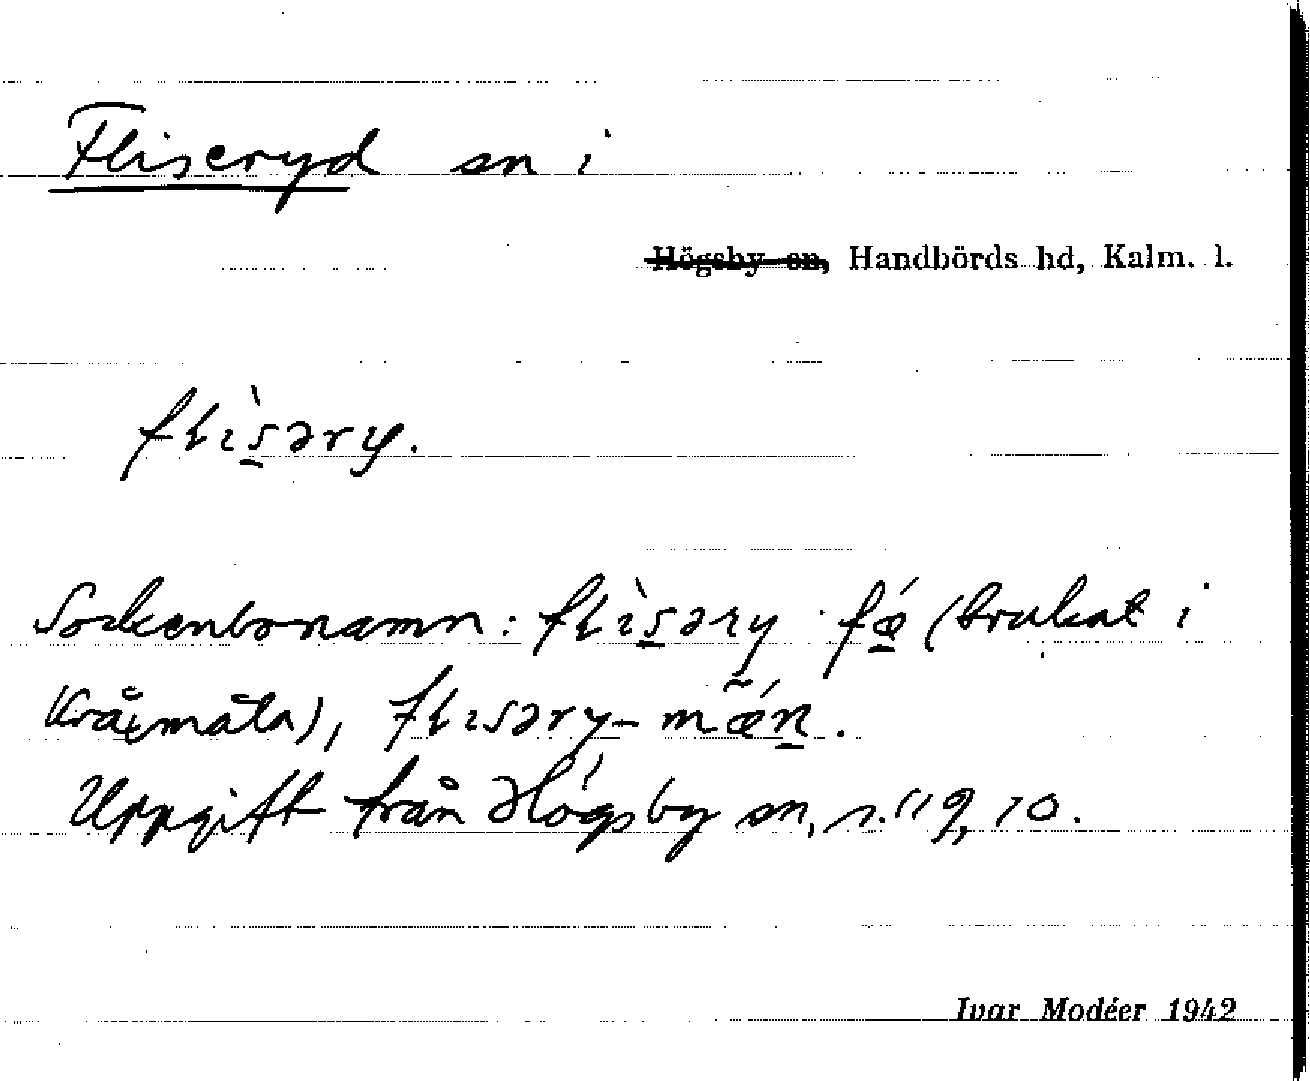 Fliseryd sn i
Högsby sn, Handbörds hd, Kalm. l.
flìsəry.
Sockenbonamn: flìsəry fǽ (brukat i
Kråxmåla), flisəry-mǽn.
Uppgift från Högsby sn, s. 119, 10.
Ivar Modéer 1942